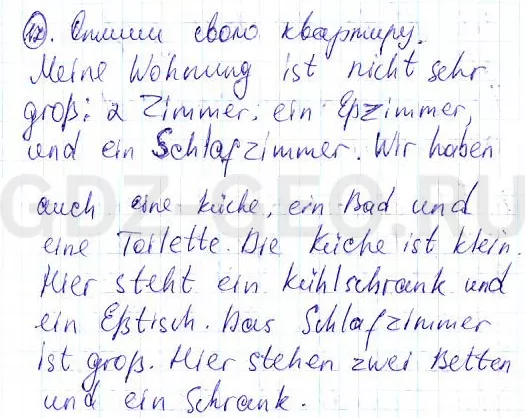 12. Опиши свою квартиру.
Meine Wohnung ist nicht sehr
groß: 2 Zimmer: ein Eßzimmer,
und ein Schlafzimmer. Wir haben
GDZ-GEO.RU
auch eine Küche, ein Bad und
eine Toilette. Die Küche ist klein.
Hier steht ein Kühlschrank und
ein Eßtisch. Das Schlafzimmer
ist groß. Hier stehen zwei Betten
und ein Schrank.